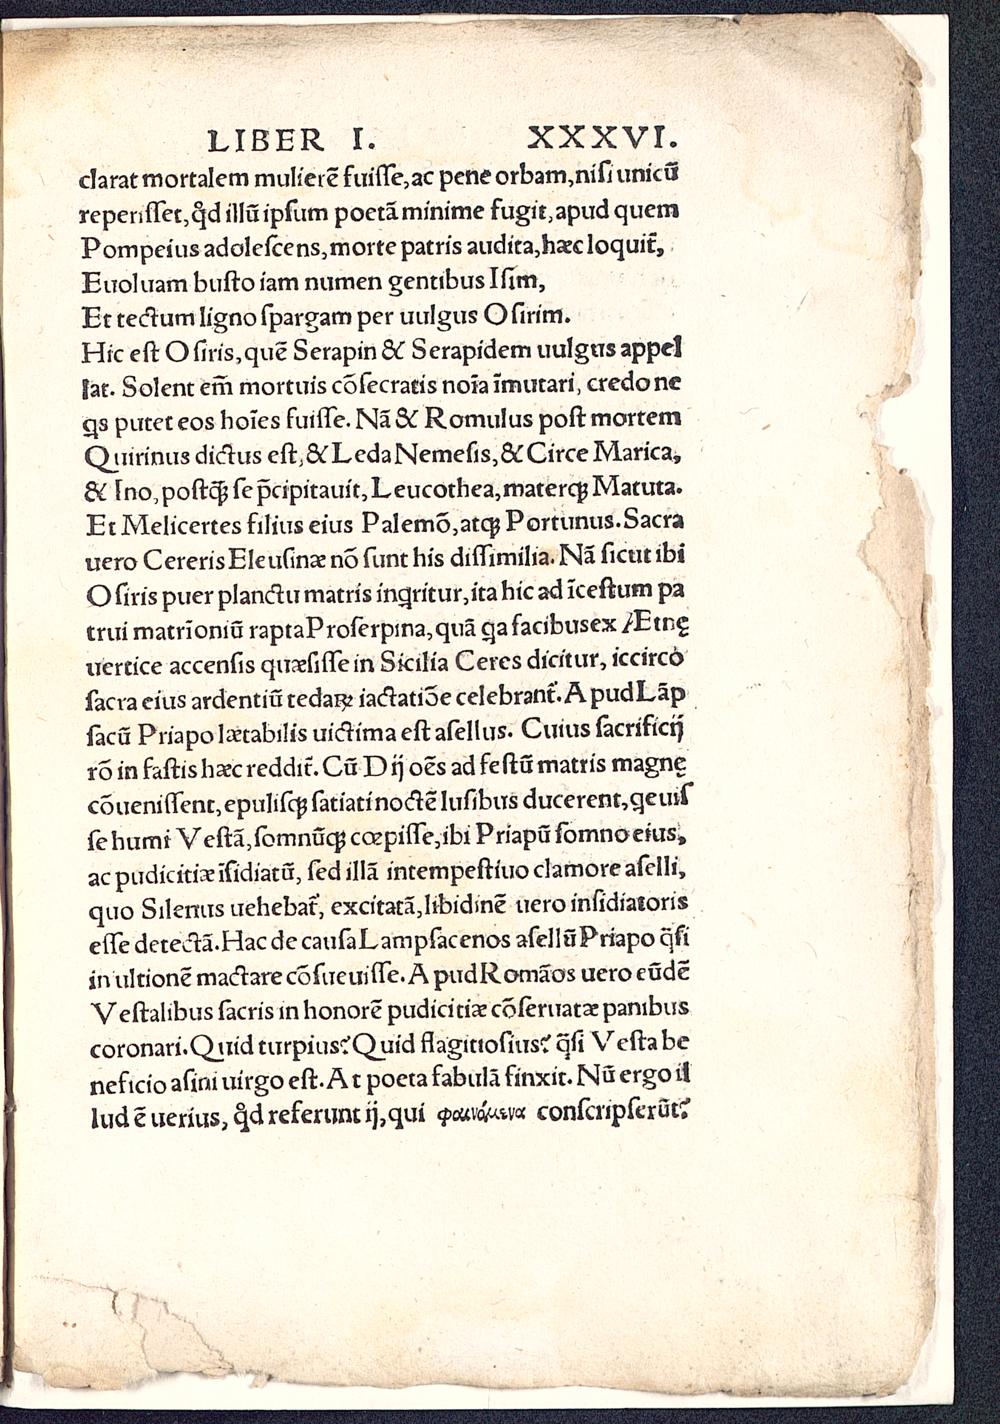 LIBER I. XXXVI.
clarat mortalem mulierē fuiſſe, ac pene orbam, niſi unicū
reperiſſet, qd̊ illū ipſum poetā minime fugit, apud quem
Pompeius adoleſcens, morte patris audita, hæc loquit᷑,
Euoluam buſto iam numen gentibus Iſim,
Et tectum ligno ſpargam per uulgus Oſirim.
Hic eſt Oſiris, quē Serapin & Serapidem uulgus appel
lat. Solent em̄ mortuis cōſecratis noīa īmutari, credo ne
qs putet eos hoīes fuiſſe. Nā & Romulus poſt mortem
Quirinus dictus eſt, & Leda Nemeſis, & Circe Marica,
& Ino, poſtq̄ꝫ ſe p̄cipitauit, Leucothea, materqꝫ Matuta.
Et Melicertes filius eius Palemō, atqꝫ Portunus. Sacra
uero Cereris Eleuſinæ nō ſunt his diſſimilia. Nā ſicut ibi
Oſiris puer planctu matris inqritur, ita hic ad īceſtum pa
trui matrīoniū rapta Proſerpina, quā qa facibus ex Ætnę
uertice accenſis quæſiſſe in Sicilia Ceres dicitur, iccirco
ſacra eius ardentiū tedaꝝ iactatiōe celebrant᷑. Apud Lāp
ſacū Priapo lætabilis uictima eſt aſellus. Cuius ſacrificij
rō in faſtis hæc reddit᷑. Cū Dij oēs ad feſtū matris magnę
cōueniſſent, epuliſqꝫ ſatiati noctē luſibus ducerent, qeuiſ
ſe humi Veſtā, ſomnūqꝫ cœpiſſe, ibi Priapū ſomno eius,
ac pudicitiæ īſidiatū, ſed illā intempeſtiuo clamore aſelli,
quo Silenus uehebat᷑, excitatā, libidinē uero inſidiatoris
eſſe detectā. Hac de cauſa Lampſacenos aſellū Priapo q̄ſi
in ultionē mactare cōſueuiſſe. Apud Romāos uero eūdē
Veſtalibus ſacris in honorē pudicitiæ cōſeruatæ panibus
coronari. Quid turpius? Quid flagitioſius? q̄ſi Veſta be
neficio aſini uirgo eſt. At poeta fabulā finxit. Nū ergo il
lud ē uerius, qd̊ referunt ij, qui φαινόμενα conſcripſerūt?